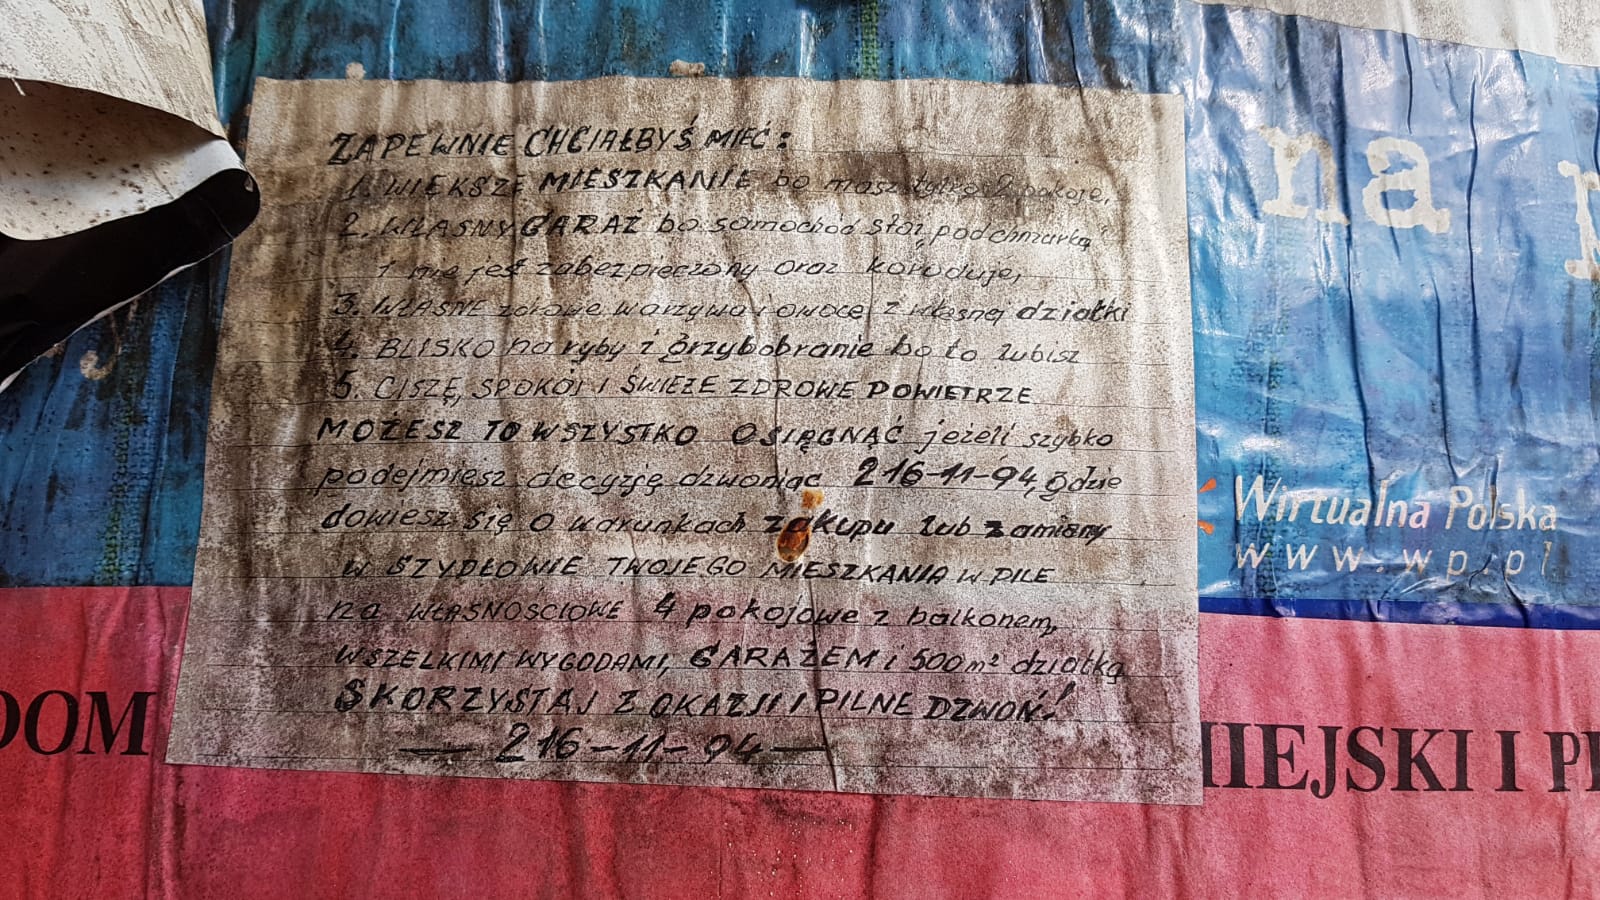 ZAPEWNIE CHCIAŁBYŚ MIEĆ:
1. WIĘKSZE MIESZKANIE bo masz tylko 2 pokoje,
2. WŁASNY GARAŻ bo samochód stoi „pod chmurką”
i nie jest zabezpieczony oraz koroduje,
3. WŁASNE zdrowe warzywa i owoce z własnej działki
4. BLISKO na ryby i grzybobranie bo to lubisz
5. CISZĘ, SPOKÓJ I ŚWIEŻE ZDROWE POWIETRZE
MOŻESZ TO WSZYSTKO OSIĄGNĄĆ jeżeli szybko
podejmiesz decyzję dzwoniąc 216-11-94, gdzie
dowiesz się o warunkach zakupu lub zamiany
W SZYDŁOWIE TWOJEGO MIESZKANIA W PILE
na WŁASNOŚCIOWE 4 pokojowe z balkonem,
WSZELKIMI WYGODAMI, GARAŻEM i 500m² działką
SKORZYSTAJ Z OKAZJI I PILNE DZWOŃ!
— 216-11-94 —
na
Wirtualna Polska
www.wp.pl
DOM
IEJSKI I P